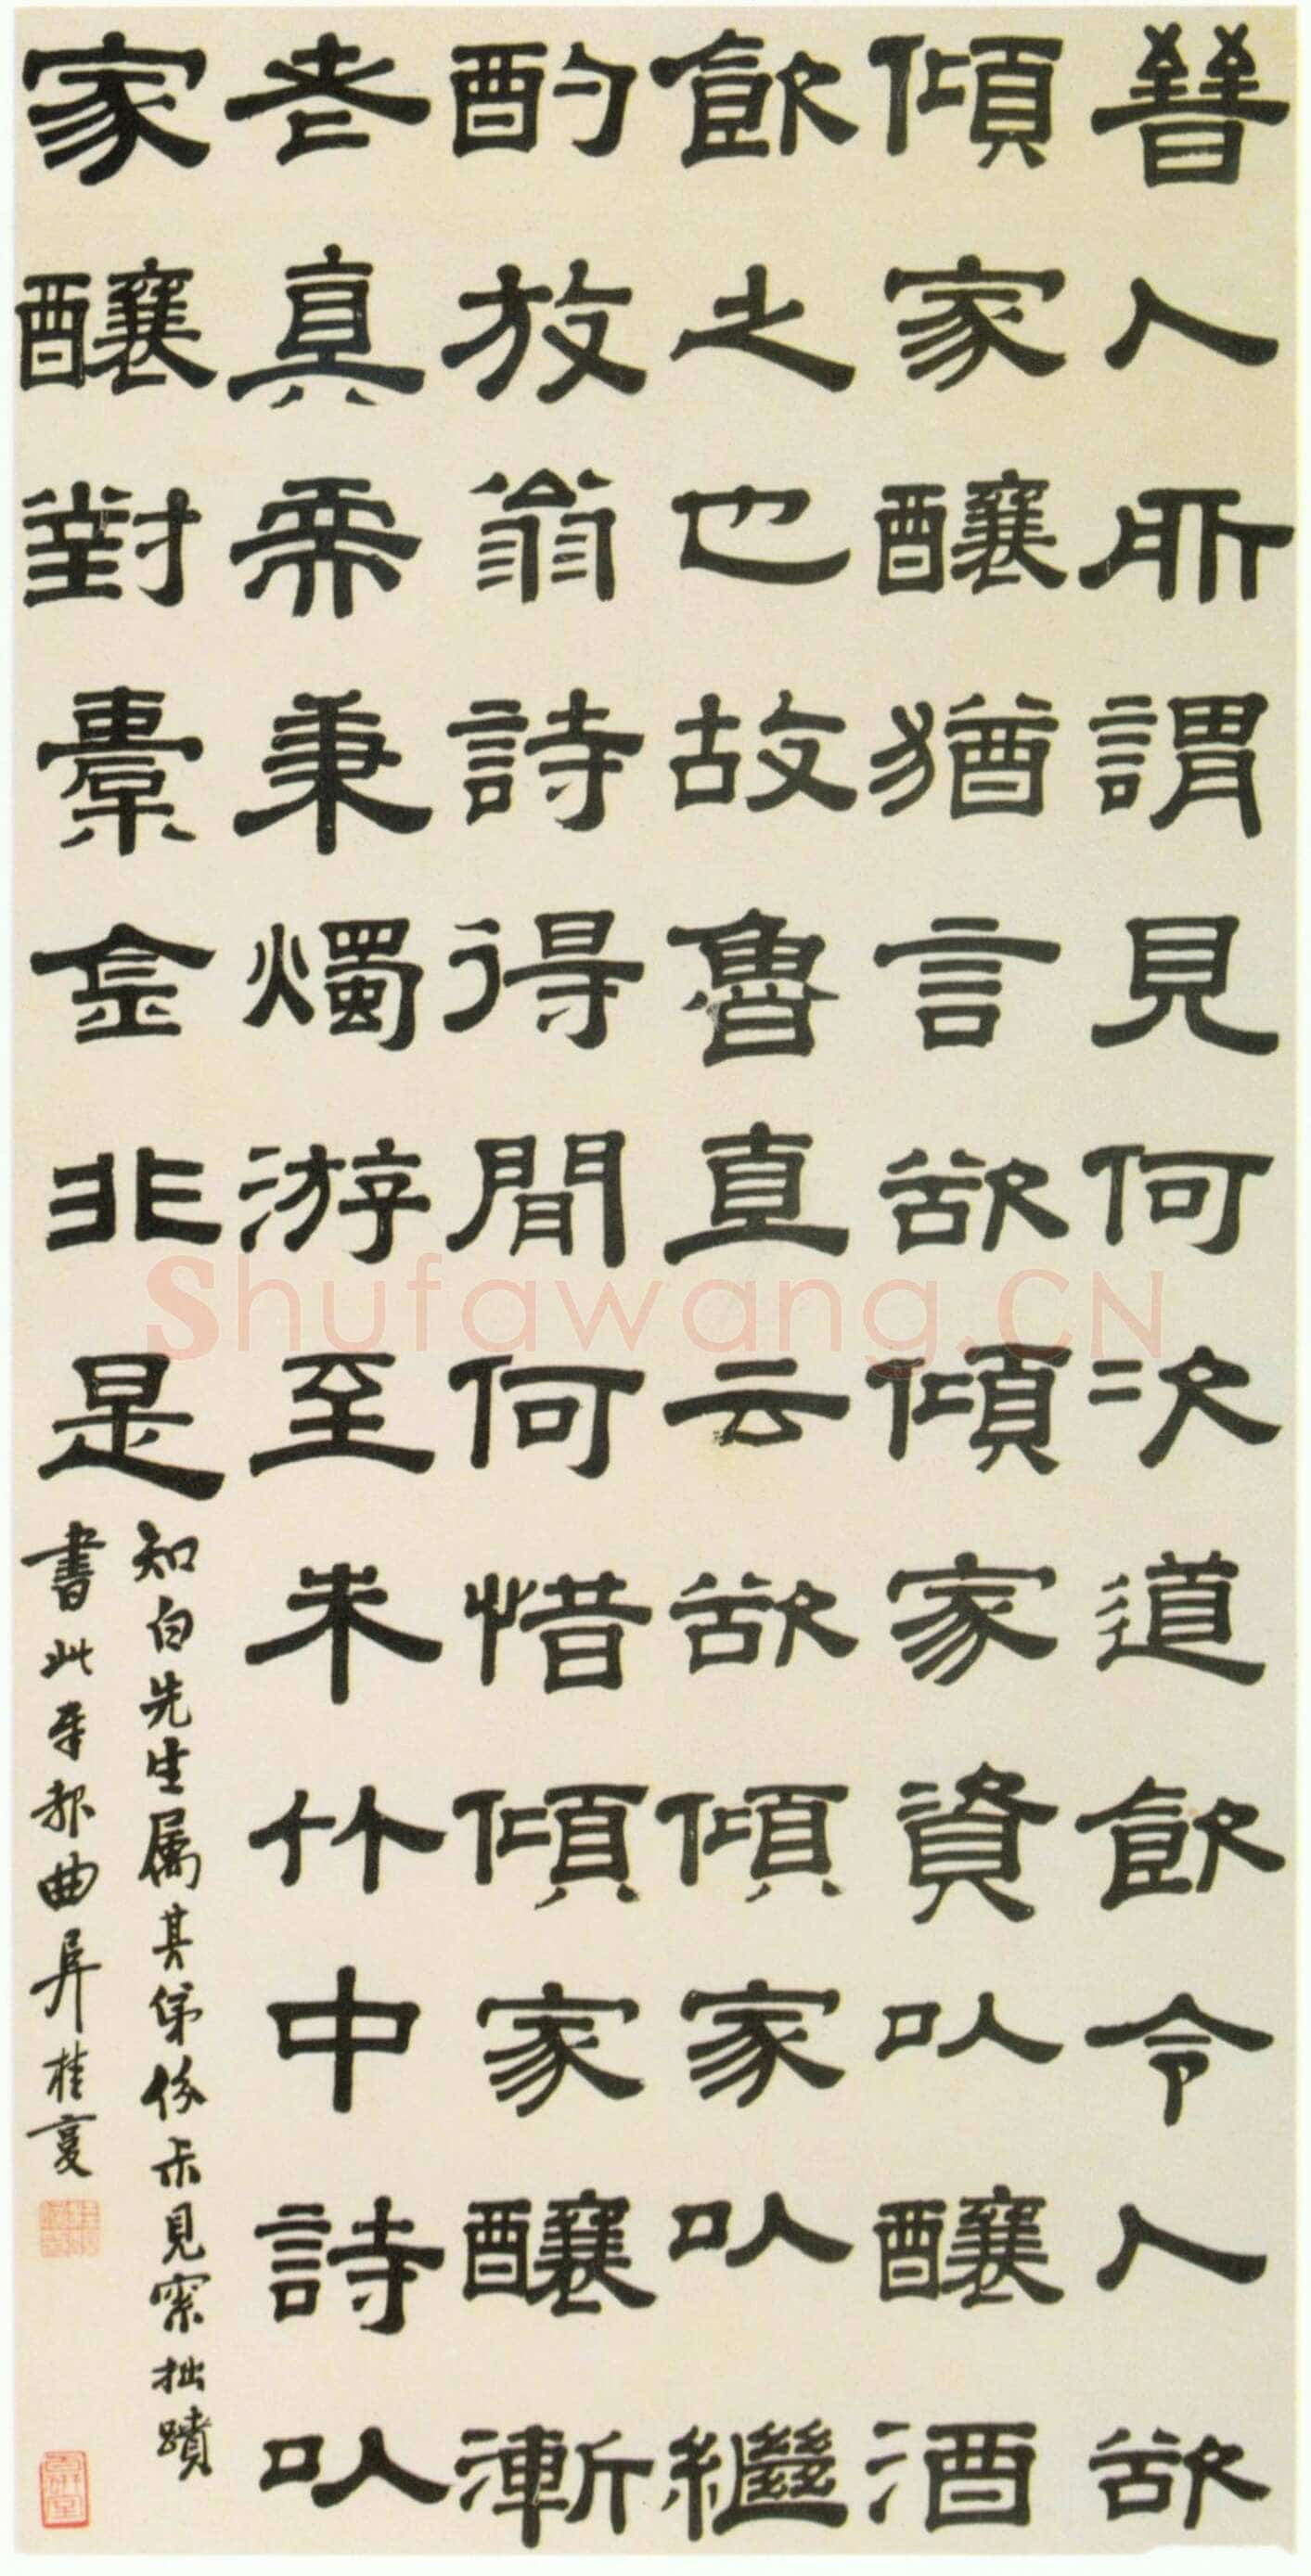 晉人所謂見何次道飲令人欲
傾家釀猶言欲傾家資以釀酒
飲之也故魯直云欲傾家以繼
酌放翁詩得閒何惜傾家釀漸
老真需秉燭游至朱竹中詩以
家釀對橐金非是
知白先生屬其弟份示見索拙蹟
書此奉報曲阜桂馥
Shufawang.CN